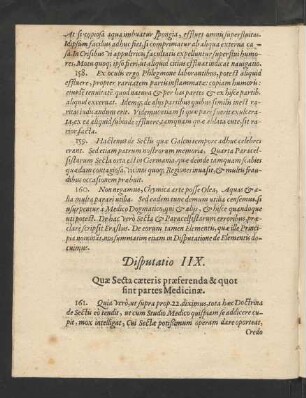 At si copiosa aqua imbuatur spongia, effluet omni superfluitas.
Id ipsum facilius adhuc fiet, si comprimatur ab aliqua externa cau-
sa. In Crisibus vi expultrice salubriter expelluntur superflui humo-
res. Motu quoq; ipso fieri ut aliquid citius effluat indicat navigatio.
158. Ex oculo ergo Phlegmone laborantibus, potest aliquid
effluere, propter raritatem partis inflammatæ: copiam humoris:
emesse tenuitatē
aliquid exernat. Idemq; de alijs partibus quibus similis inest ra-
ritas iudicandum erit. Videmus etiam
ta, et ex ea aliquid subinde effluere,
tor facta.
159. Hactenus de Secta quæ Galeni tempore adhuc celebres
erant. Sed etiam patrum nostrorum memoria, Quarta Paracel-
sistarum Secta orta est in Germania, quæ deinde tamquam scabies
quædam contagiosa, vicinas quoq; Regiones inuasit, & multis frau-
dibus occasionem præbuit.
160. Non negamus, Chymica arte posse Olea, Aquas & a-
lia multa parari utilia. Sed eadem tunc demum utilia censemus, si
usurpentur à Medico Dogmatico; que & alijs, & hisce quandoque
uti potest. De hac verò Secta & Paracelsistarum erroribus, præ-
clarè scripsit Erastus. De eorum tamen Elementis, quæ ille Princi-
pia nominat, nos summatim etiam in Disputatione de Elementis do-
cuimus.
Disputatio IIX.
Quæ Secta cæteris præferenda & quot
sint partes Medicinæ.
161. Quia Verò, ut supra prop. 22. diximus, tota hæc Doctrina
de Sectis eò tendit, ut cum Studio Medico quispiam se addicere cu-
pit, mox intelligat, Cui Sectæ potissimùm operam dare oporteat,
Credo